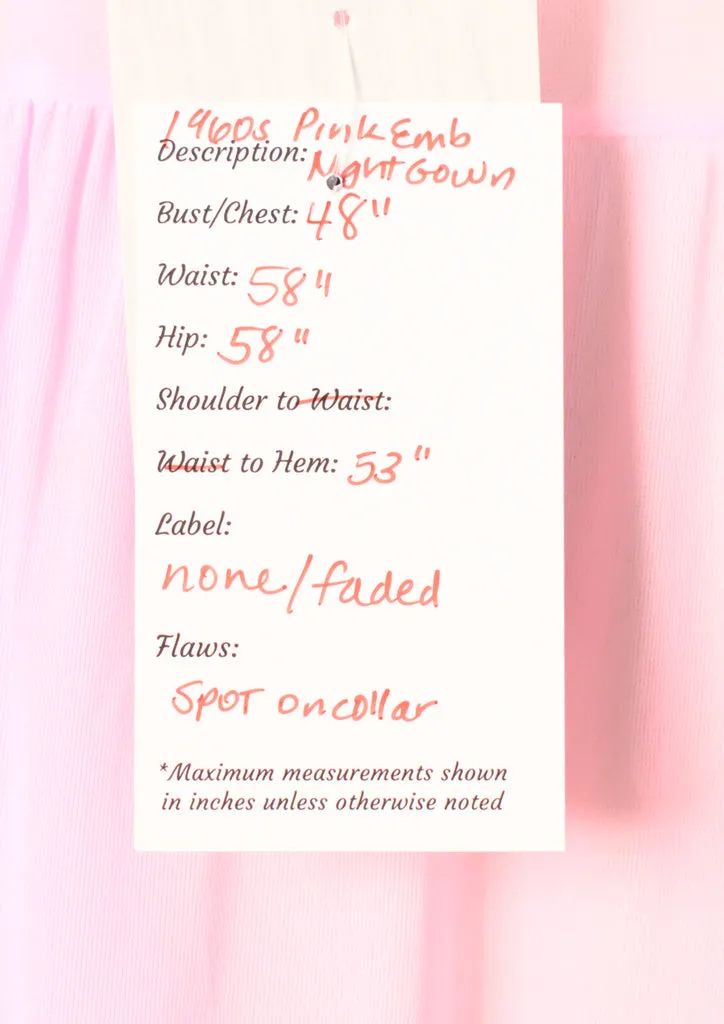 1960s Pink Emb
Description: Night Gown
Bust/Chest: 48"
Waist: 58"
Hip: 58"
Shoulder to Waist:
Waist to Hem: 53"
Label:
none/faded
Flaws:
SPOT on collar
*Maximum measurements shown
in inches unless otherwise noted